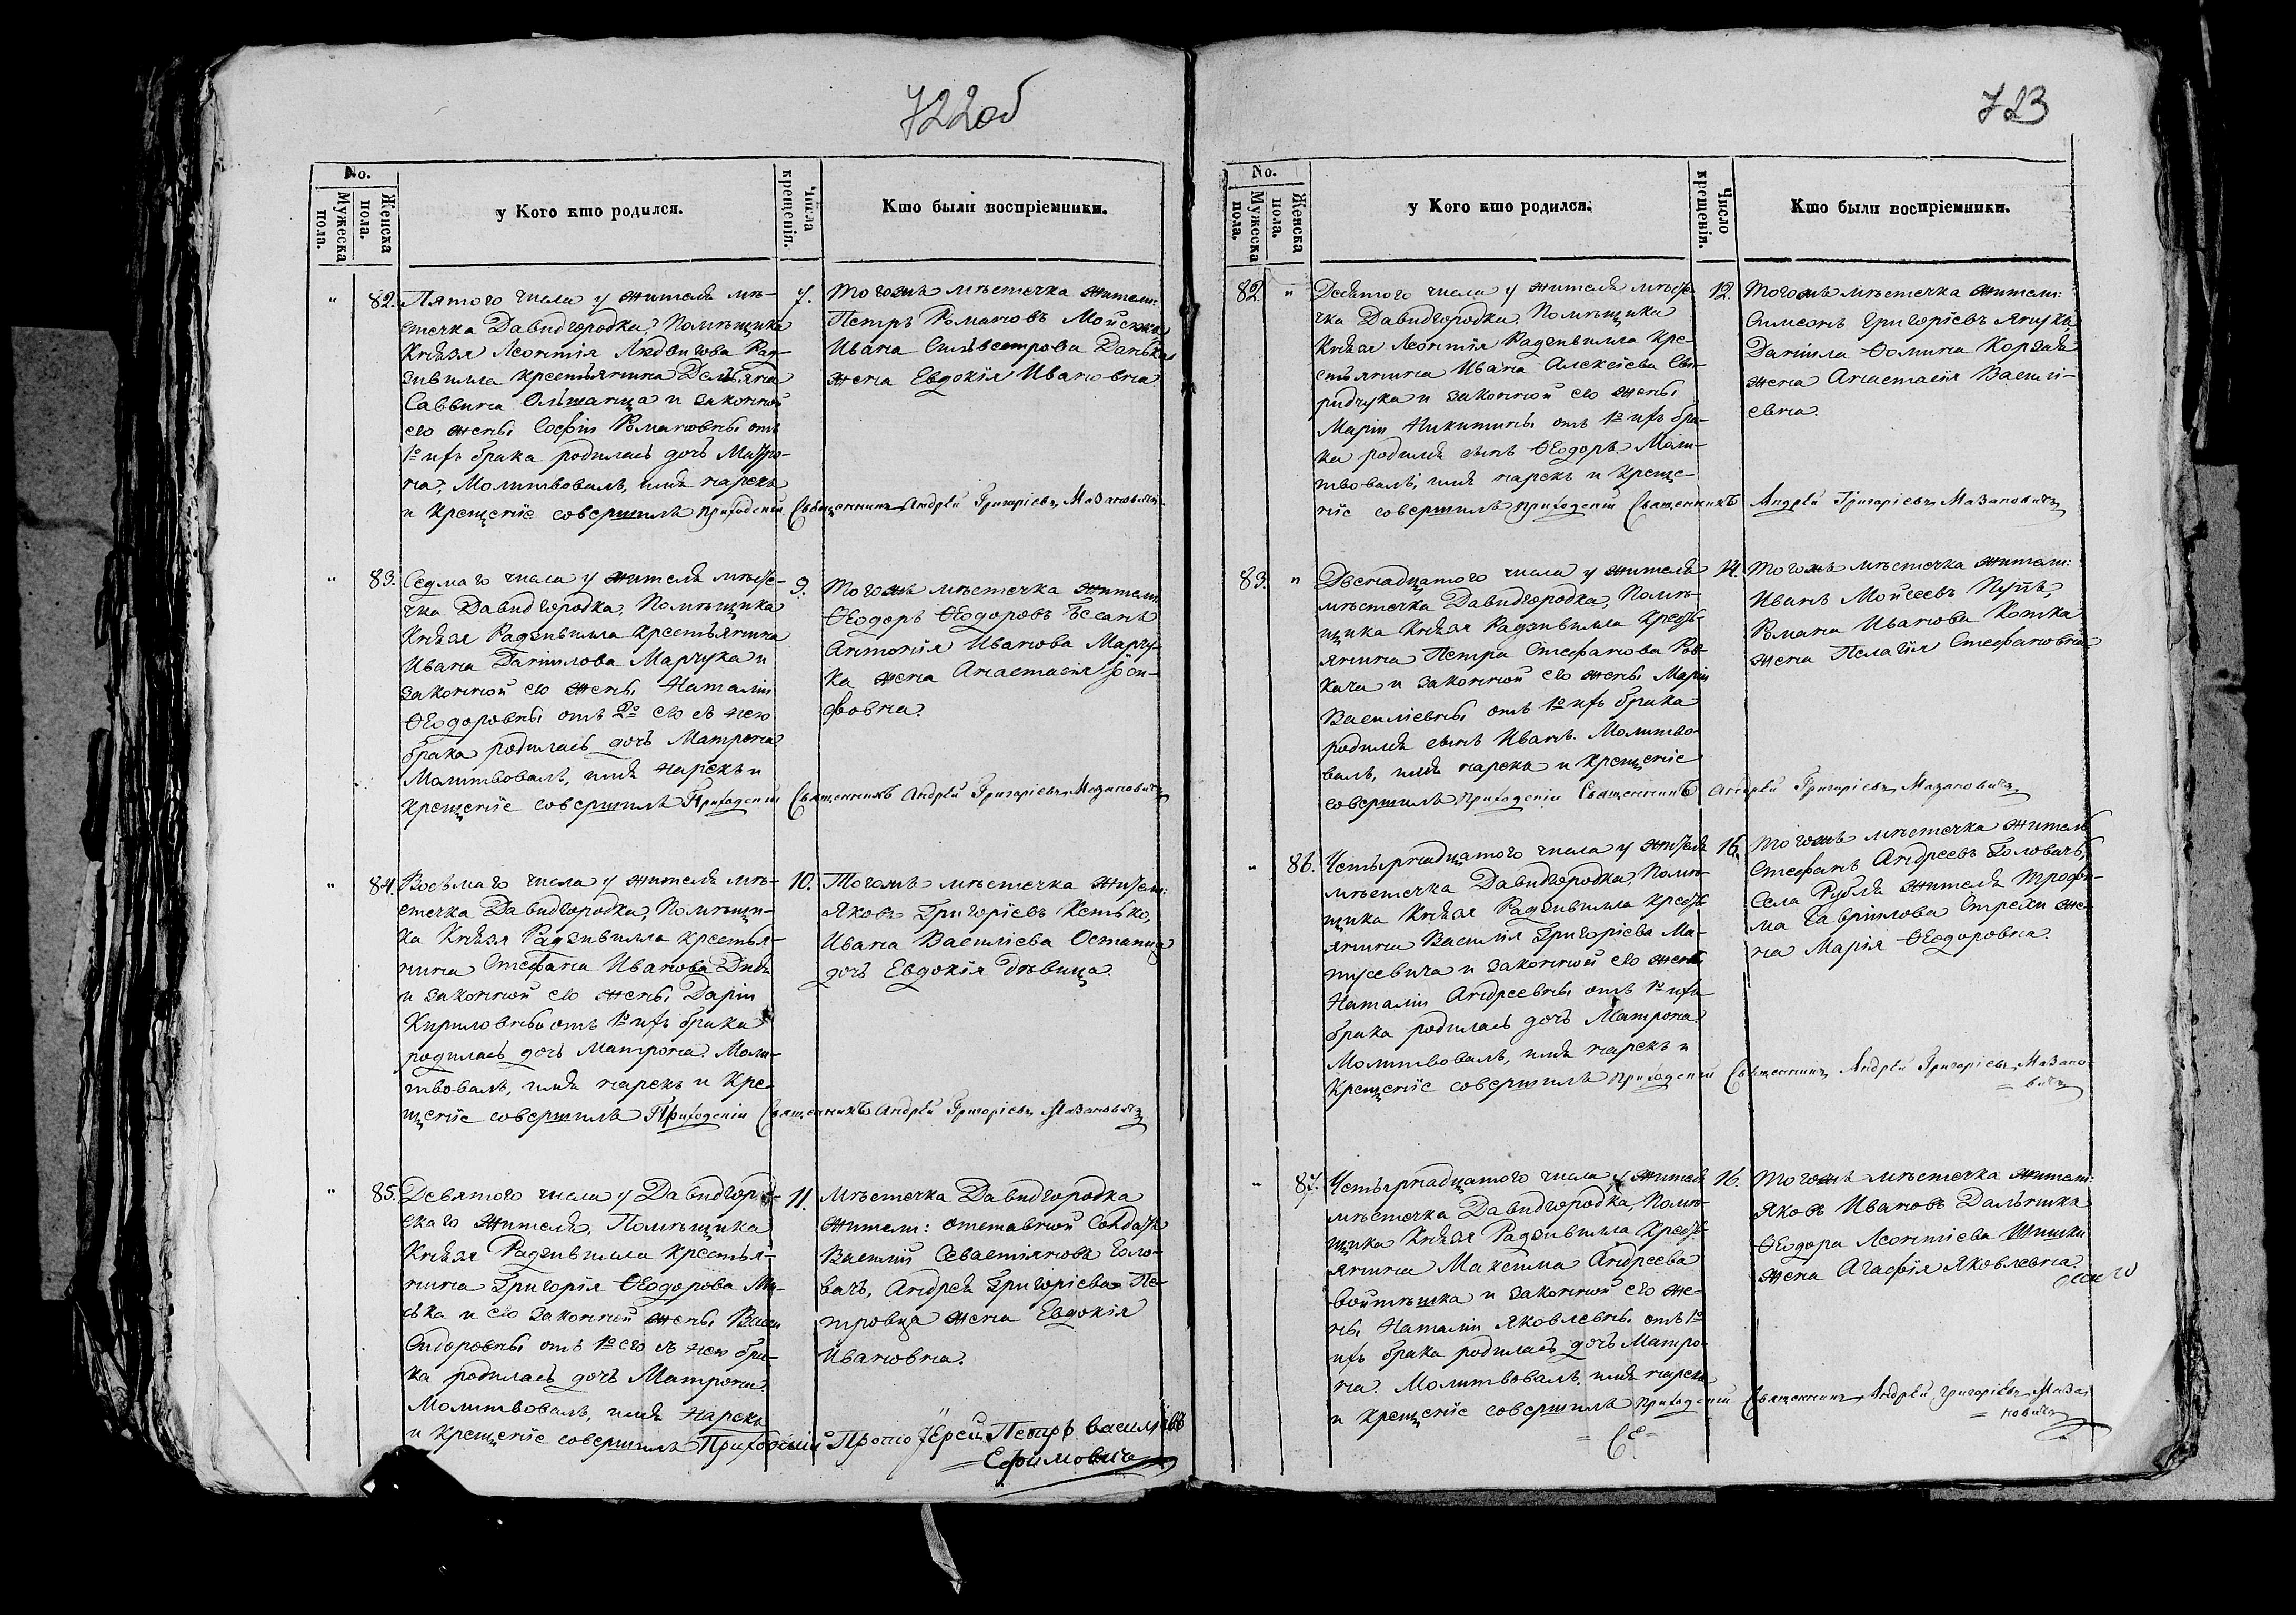 722об
No.
Мужеска пола.
Женска пола.
у Кого кто родился.
Числа крещенія.
Кто были воспріемники.
" 82. Пятого числа у жителя мѣ-
стечка Давидгородка, Помѣщика
Князя Леонтія Людвигова Рад-
зивилла крестьянина Демьяна
Саввина Ольшанца и законной
его жены Софіи Романовны отъ
1º ихъ брака родилась дочь Матро-
на, Молитвовалъ, имя нарекъ
и крещеніе совершилъ Приходскій Священникъ Андрей Григоріевъ Мазановичъ
7. Тогожъ мѣстечка жители:
Петръ Романовъ Мойсюкъ
Ивана Сильвестрова Данька
жена Евдокія Ивановна
" 83. Седмаго числа у жителя мѣсте-
чка Давидгородка, Помѣщика
Князя Радзивилла крестьянина
Ивана Данилова Марчука и
законной его жены Наталіи
Ѳеодоровны отъ 2º его съ нею
брака родилась дочь Матрона
Молитвовалъ, имя нарекъ и
крещеніе совершилъ Приходскій Священникъ Андрей Григоріевъ Мазановичъ
9. Тогожъ мѣстечка жители
Ѳеодоръ Ѳеодоровъ
Антонія Иванова Марчу-
ка жена Анастасія
фовна.
" 84. Восьмаго числа у жителя мѣ-
стечка Давидгородка, Помѣщи-
ка Князя Радзивилла крестья-
нина Стефана Иванова
и законной его жены Даріи
Кириловны отъ 1º ихъ брака
родилась дочь Матрона. Моли-
твовалъ, имя нарекъ и Кре-
щеніе совершилъ Приходскій Священникъ Андрей Григоріевъ Мазановичъ
10. Тогожъ мѣстечка жители:
Яковъ Григоріевъ Кетько,
Ивана Василіева Остапца
дочь Евдокія дѣвица.
" 85. Девятого числа у Давидгород-
скаго жителя, Помѣщика
Князя Радзивилла крестья-
нина Григорія Ѳеодорова Ми-
ська и его законной жены Вассы
Сидоровны отъ 1º его съ нею бра-
ка родилась дочь Матрона.
Молитвовалъ, имя нарекъ
и крещеніе совершилъ Приходскій Протоіерей Петръ Васильевъ
Ефимовичъ
11. Мѣстечка Давидгородка
жители: отставной Солдатъ
Василій Севастіяновъ Голо-
вачъ, Андрея Григоріева Пе-
тровца жена Евдокія
Ивановна.
723
No.
Мужеска пола.
Женска пола.
у Кого кто родился.
Число крещенія.
Кто были воспріемники.
82. " Девятого числа у жителя мѣсте-
чка Давидгородка, Помѣщика
Князя Леонтія Радзивилла Кре-
стьянина Ивана Алексіева Сви-
ридчука и законной его жены
Маріи Никитины отъ 1º ихъ бра-
ка родился сынъ Ѳеодоръ. Моли-
твовалъ, имя нарекъ и Креще-
ніе совершилъ Приходскій Священникъ Андрей Григоріевъ Мазановичъ
12. Тогожъ мѣстечка жители:
Симеонъ Григоріевъ
Даніила Ѳомина Корзана
жена Анастасія Василі-
евна.
83. " Двенадцатого числа у жителя
мѣстечка Давидгородка, Помѣ-
щика Князя Радзивилла Кресть-
янина Петра Стефанова
и законной его жены Маріи
Василіевны отъ 1º ихъ брака
родился сынъ Иванъ. Молитво-
валъ, имя нарекъ и крещеніе
совершилъ Приходскій Священникъ Андрей Григоріевъ Мазановичъ
14. Тогожъ мѣстечка жители:
Иванъ Мойсеевъ
Романа Иванова Котка
жена Пелагія Стефановна
" 86. Четырнадцатого числа у жителя
мѣстечка Давидгородка, Помѣ-
щика Князя Радзивилла Кресть-
янина Василія Григоріева Ма-
тусевича и законной его жены
Наталіи Андреевны отъ 1º ихъ
брака родилась дочь Матрона.
Молитвовалъ, имя нарекъ и
Крещеніе совершилъ Приходскій Священникъ Андрей Григоріевъ Мазано-
вичъ
16. Тогожъ мѣстечка житель
Стефанъ Андреевъ Головачъ,
Села Рубля жителя Трофи-
ма Гаврилова Стрехи же-
на Марія Ѳеодоровна.
" 87. Четырнадцатого числа у жителя
мѣстечка Давидгородка, Помѣ-
щика Князя Радзивилла Кресть-
янина Максима Андреева
Войтѣшка и законной его же-
ны Наталіи Яковлевны отъ 1º
ихъ брака родилась дочь Матро-
на. Молитвовалъ, имя нарекъ
и крещеніе совершилъ Приходскій Священникъ Андрей Григоріевъ Маза-
новичъ
16. Тогожъ мѣстечка жители:
Яковъ Ивановъ Далѣшка
Ѳеодора Леонтіева Шишки
жена Агафія Яковлевна.